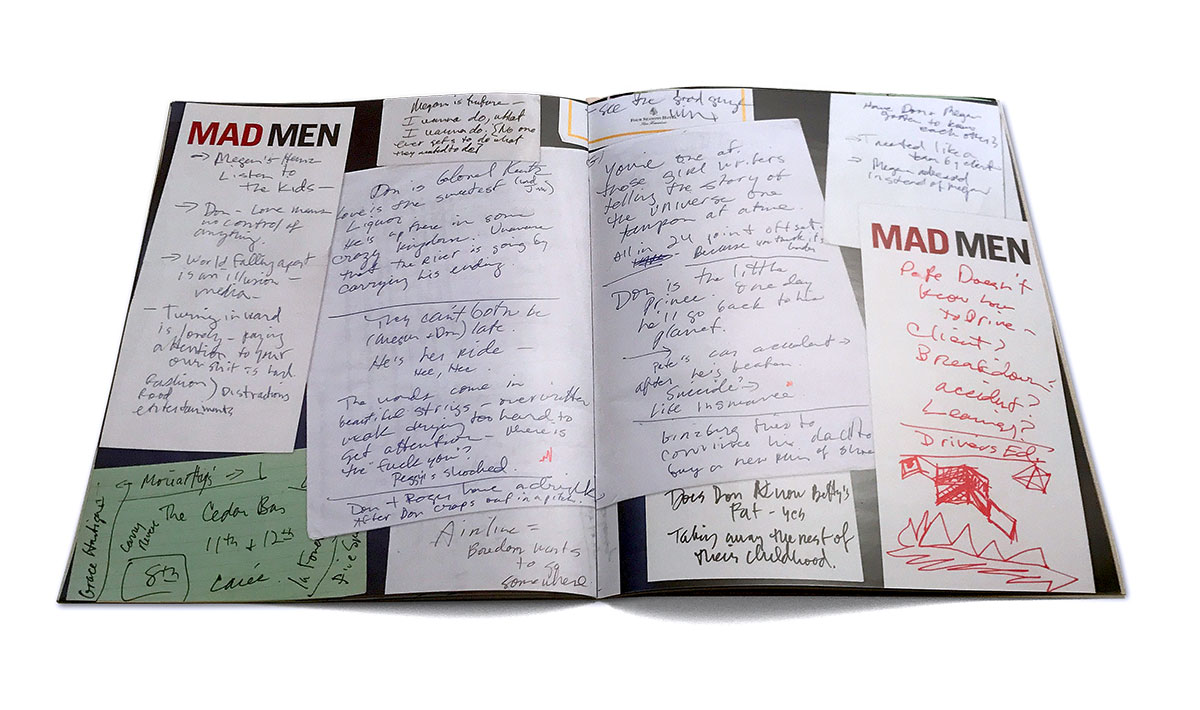 MAD MEN
→ Megan's Heinz
Listen to
the kids –
→ Don – Love means
no control of
anything.
→ World Falling apart
is an illusion –
media –
– Turning inward
is lonely – paying
attention to your
own shit is hard.
Fashion
Food ) Distractions
entertainments
Megan is future –
I wanna do, what
I wanna do, No one
ever gets to do what
they wanted to do!
Don is Colonel Kurtz
Love is the sweetest (and Jim)
Liquor
He's up there in some
crazy kingdom. Unaware
that the River is going by
carrying his ending.
They can't both be
(Megan + Don) late.
He's her Ride –
Hee, Hee
The words come in
beautiful strings – overwritten
weak trying too hard to
get attention – where is
the "fuck you"?
Peggy's shocked.
Don + Roger have a drink
After Don craps out in a pitch.
← Moriarty's →
Grace Hartigan
Larry
Rivers
The Cedar Bar
11th + 12th
8th
Airline =
Boredom wants
to go
somewhere
see the good guys
win
FOUR SEASONS HOTEL
You're one of
those girl writers
telling the story of
the UNIVERSE one
tampon at a time.
All in 24 point offset.
Because you think it's
Don is the little
Prince. One day
he'll go back to his
planet.
→ Pete's car accident →
after he's beaten.
Suicide? →
Life Insurance
Ginzburg tries to
convince his dad to
buy a new pair of shoes
Have Don + Peggy
gotten to know
each other?
→ Treated like a
→ Megan
instead of Megan
MAD MEN
Pete Doesn't
know how
to Drive –
Client?
Breakdown?
accident?
Learning?
Drivers Ed?
Does Don Know Betty's
Fat – yes
Taking away the rest of
their childhood.